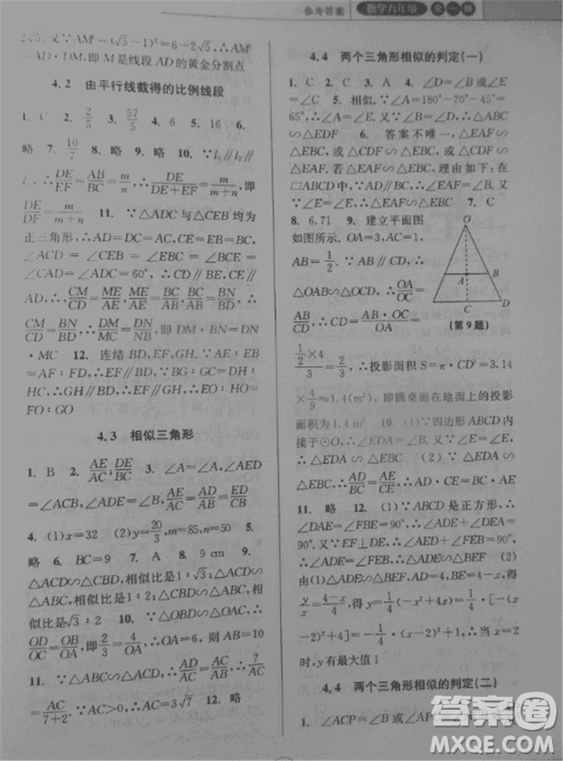 参考答案 数学九年级 全一册
2√5. 又∵AM²=(√5-1)²=6-2√5,∴AM²
=AD·DM,即M是线段AD的黄金分割点
4.2 由平行线截得的比例线段
1. C 2. 2/5 3. 57/5 4. 6 5. 16 6.
略 7. 略 8. 略 9. 略 10. ∵l₁∥l₂∥
l₃,∴DE/EF=AB/BC=m/n,∴DE/(DE+EF)=m/(m+n),即
DE/DF=m/(m+n) 11. ∵△ADC与△AMB为
正三角形,∴AD∥MC,AM∥DC,
∠CDA=∠CEB=∠MCB=∠AMB
=∠ADC=60°,∴CM∥BE∥
DA,∴CM/CD=ME/AE,ME/AE=BN/AB,BN/AB=BN/DN,
∴CM/CD=BN/DN,∴CM/DM=BN/DN,即DM·BN=DN
·MC 12. 连结BD,EF,GH,∵AE:EB
=AF:FD,∴EF∥BD,∵BG:GC=DH:
HC,∴GH∥BD,∴EF∥GH,∴EO:HO
=FO:GO
4.3 相似三角形
1. B 2. AE/AC,DE/BC 3. ∠A=∠A,∠AED
=∠ACB,∠ADE=∠B,AE/AC=AD/AB=DE/BC
4. (1)x=32 (2)y=20/3,m=85,n=50 5.
略 6. BC=9 7. A 8. 9 cm 9.
△ACD∽△CBD,相似比是1:√3;△ACD∽
△ABC,相似比是1:2;△CBD∽△ABC,相
似比是√3:2 10. ∵△OBC∽△OAD,∴
OD/OC=OB/OA,即2/3=4/OA,∴OA=6
11. ∵△ABC∽△ACF,∴AD/AC=AC/AB,∴7/AC
=AC/(7+2),∴AC=3√7 12. 略
4.4 两个三角形相似的判定(一)
1. C 2. C 3. A 4. ∠D=∠A或∠E=∠B
5. 相似. ∵∠A=180°-70°-45°=
65°,∴∠A=∠D,∵∠B=∠E,∴△ABC
∽△EDF 6. 答案不唯一,△EAF∽
△EBC,或△CDF∽△EBC,或△EAF∽
△CDF. 理由如下:若△EAF∽△EBC,在
□ABCD中,∵AD∥BC,∴∠EAF=∠B,
又∵∠E=∠E,∴△EAF∽△EBC 7. C
8. 6.71 9. 建立平面图
如图所示,OA=3,AC=1,
AB=1/2. ∵AB∥CD,∴
△OAB∽△OCD,∴OA/OC=
AB/CD,∴CD=AB·OC/OA=
(1/2×4)/3=2/3,∴投影面积S=π·CD²=3.14
×4/9≈1.4(m²),即圆桌面在地面上的投影
面积约为1.4m² 10. (1)∵四边形ABCD内
接于⊙O,∴∠EDA=∠EBC,又∵∠E=
∠E,∴△EDA∽△EBC (2)成立,AD/BC=EA/EC
11. 略 12. (1)∵ABCD是正方形,∴
∠DAE=∠FBE=90°,∴∠ADE+∠DEA
=90°. 又EF⊥DE,∴∠AED+∠FEB=
90°,∴∠ADE=∠FEB,∴△ADE∽△BEF
(2)由(1)△ADE∽△BEF,AD=4,BE=4-x,得
y/x=(4-x)/4,得y=1/4(-x²+4x)=1/4[-(x
-2)²+4]=-1/4(x-2)²+1,所以当x=2
时,y有最大值1
O
A B
C D
(第9题)
4.4 两个三角形相似的判定(二)
1. ∠ACP=∠B或∠APC=∠ACB或
答案圈
MXQE.COM